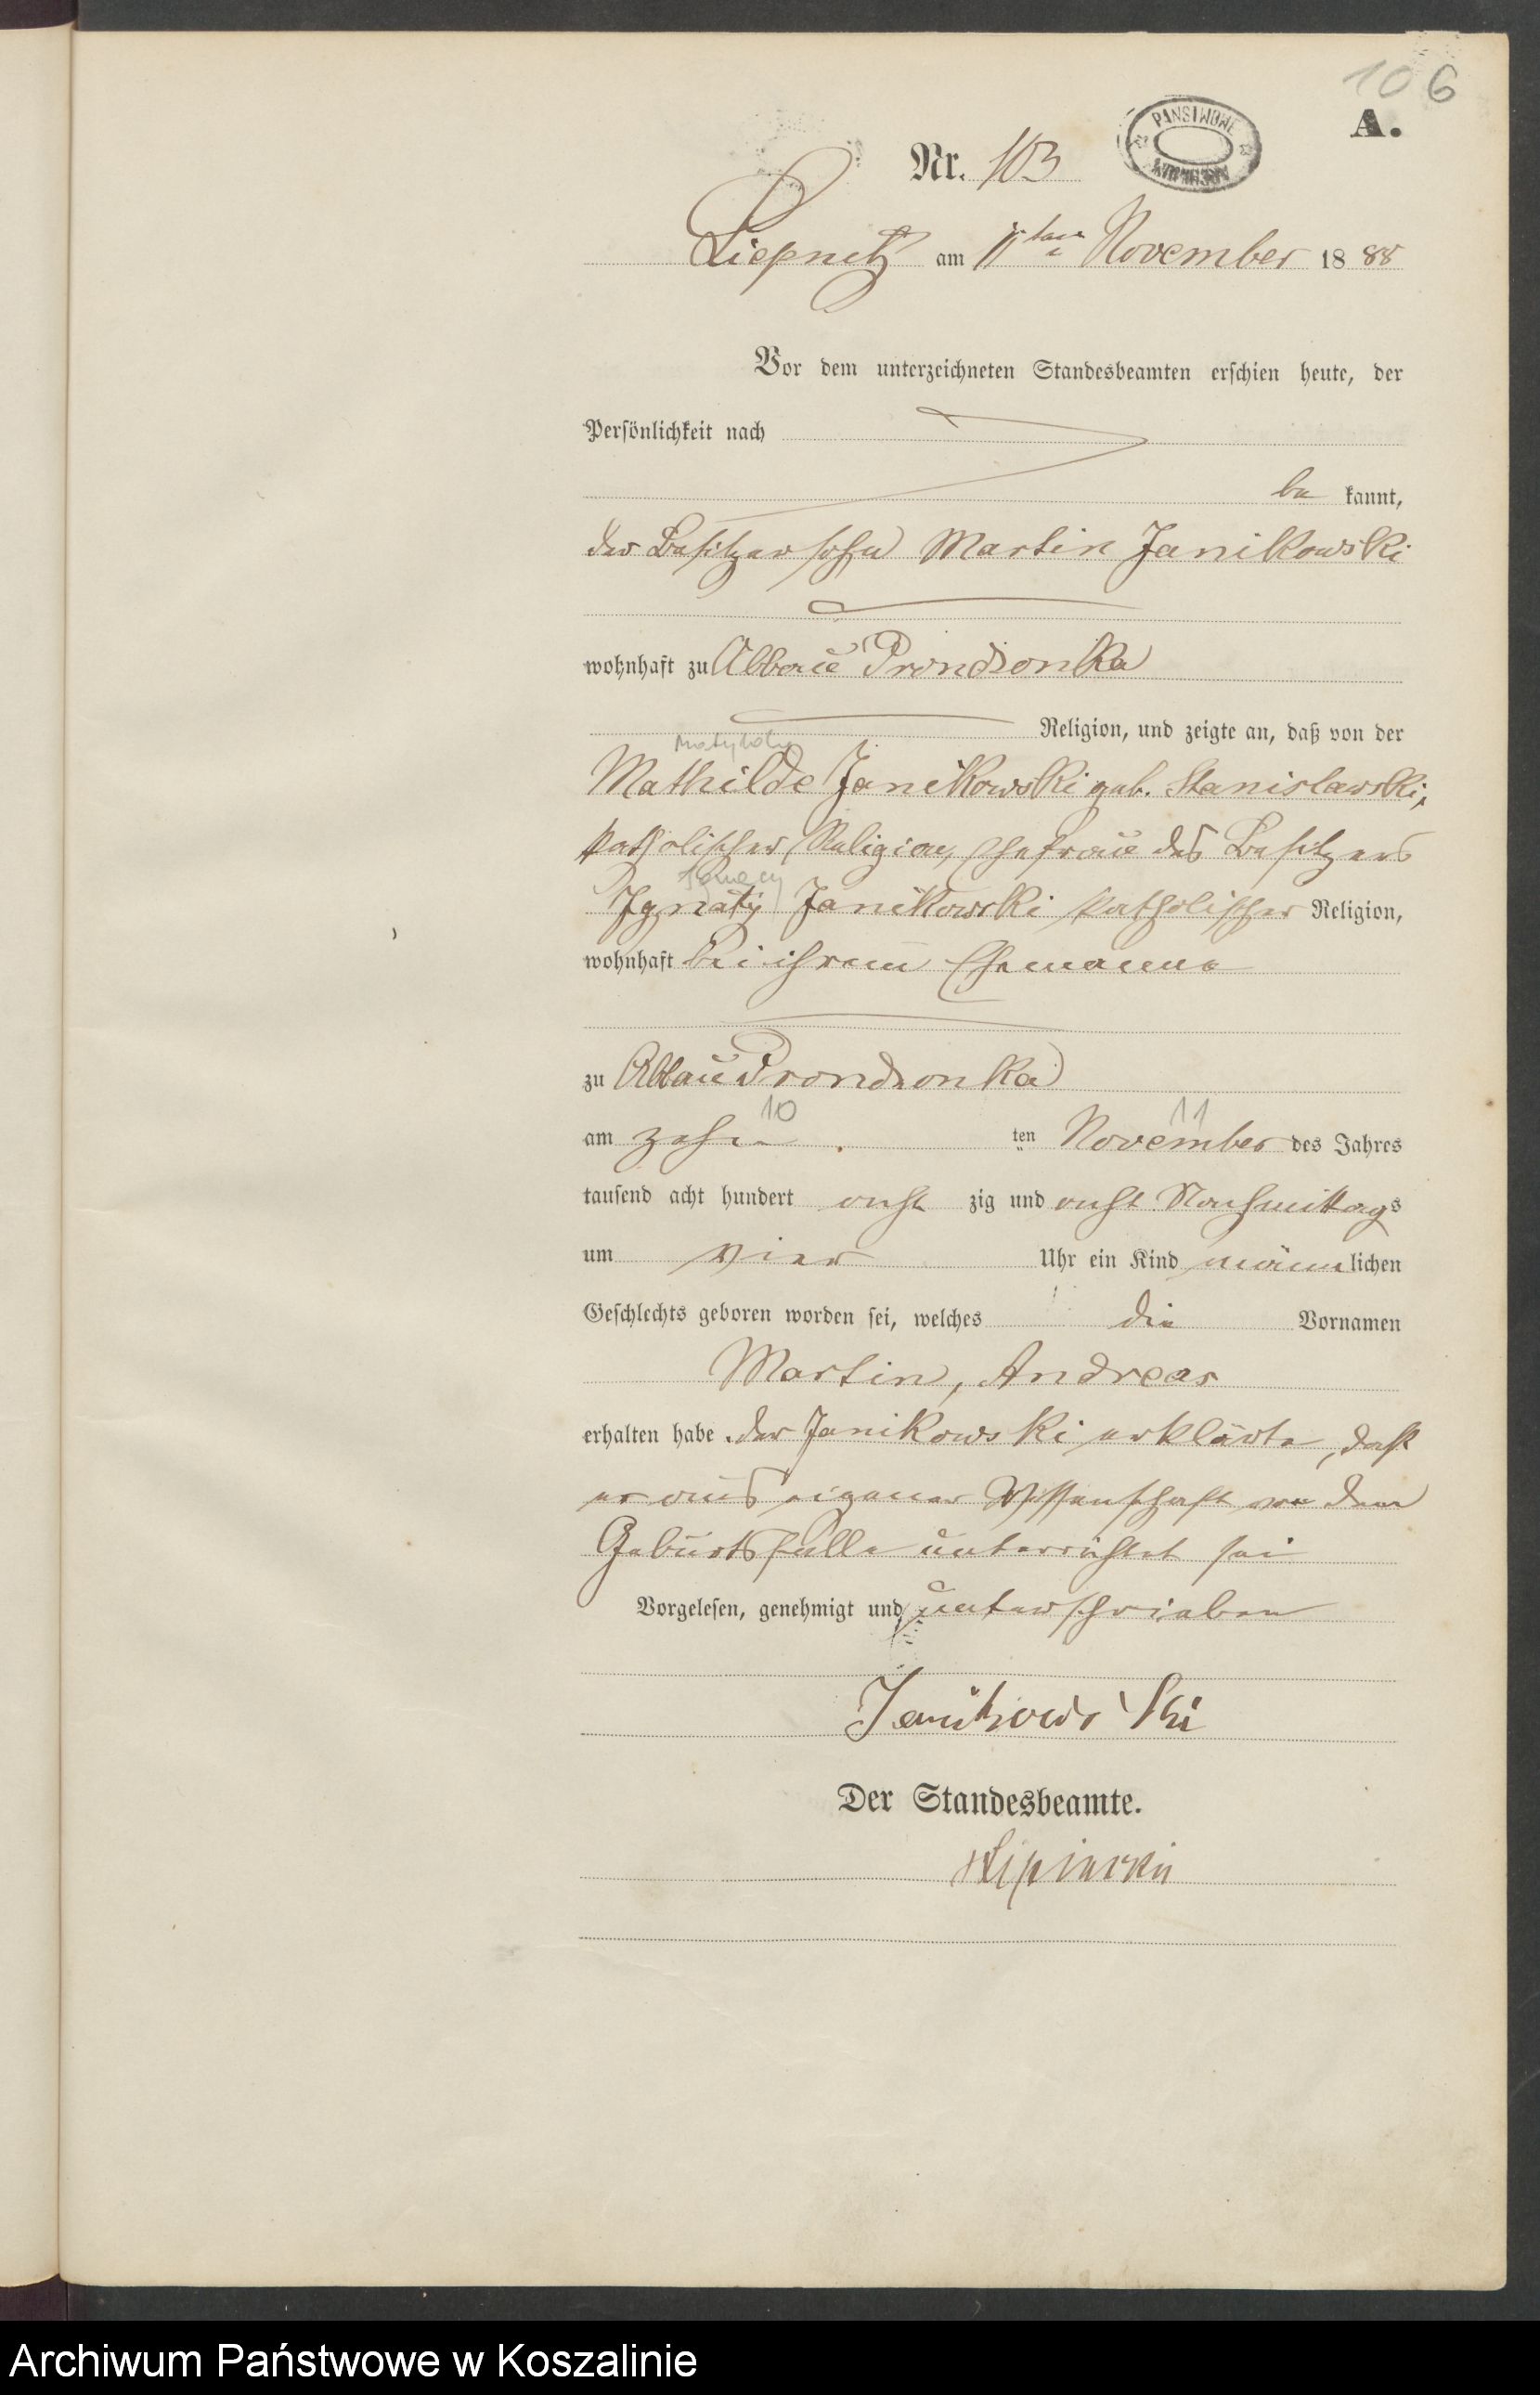 106
A.
PAŃSTWOWE
ARCHIWUM
Nr. 103
Liepnitz am 11ten November 1888
Vor dem unterzeichneten Standesbeamten erschien heute, der
Persönlichkeit nach
be kannt,
der Besitzersohn Martin Janikowski
wohnhaft zu Abbau Prondzonka
Religion, und zeigte an, daß von der
Matyldy
Mathilde Janikowski geb. Stanislawski,
katholischer Religion, Ehefrau des Besitzers
Ignacy
Ignatz Janikowski katholischer Religion,
wohnhaft bei ihrem Ehemanne
zu Abbau Prondzonka
10 11
am zehn ten November des Jahres
tausend acht hundert acht zig und acht Nachmittags
um vier Uhr ein Kind männlichen
Geschlechts geboren worden sei, welches die Vornamen
Martin, Andreas
erhalten habe. der Janikowski erklärte, daß
er aus eigener Wissenschaft von dem
Geburtsfalle unterrichtet sei
Vorgelesen, genehmigt und unterschrieben
Janikowski
Der Standesbeamte.
Archiwum Państwowe w Koszalinie